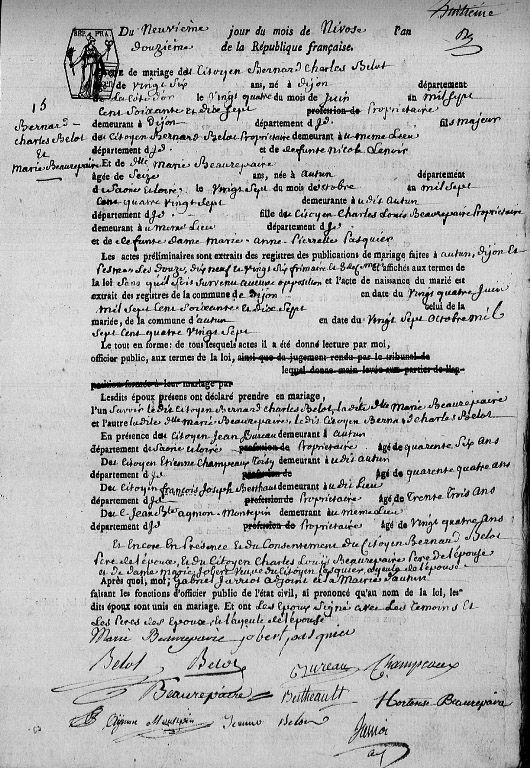 Du Neuvième jour du mois de Nivose l'an
douzième de la République française.
REP FRA
Acte de mariage des Citoyen Bernard Charles Belot
de Vingt Six ans, né à Dijon département
de la Côte d'or le Vingt quatre du mois de Juin an mil Sept
Cent Soixante et Dix Sept profession de Propriétaire
demeurant à Dijon département d'Jd. fils majeur
15
Bernard
Charles Belot
Et
Marie Beaurepaire
des Citoyen Bernard Belot Propriétaire demeurant au meme Lieu
département d'Jd. et de Defunte Nicole Lenoir
Et de Dlle Marie Beaurepaire
âgée de Seize ans, née à autun département
de Saone et Loire le Vingt Sept du mois d'octobre an mil Sept
Cent quatre Vingt Sept demeurante audit autun
département d'Jd. fille des Citoyen Charles Louis Beaurepaire Propriétaire
demeurant au meme Lieu département d'Jd.
et de Defunte Dame Marie-Anne-Pierrette Pasquier
Les actes préliminaires sont extraits des registres des publications de mariage faites à autun, Dijon Et
Les Douze, Dix neuf et Vingt Six frimaire affichés aux termes de
la loi Sans qu'il Soit Survenu aucune opposition et l'acte de naissance du marié est
extrait des registres de la commune de Dijon en date du Vingt quatre Juin
Mil Sept Cent Soixante et Dix Sept celui de la
mariée, de la commune d'autun en date du Vingt Sept Octobre Mil
Sept Cent quatre Vingt Sept
Le tout en forme: de tous lesquels actes il a été donné lecture par moi,
officier public, aux termes de la loi, ainsi que du jugement rendu par le tribunal de
lequel donne main levée aux partier de l'op-
position formée à leur mariage par
Lesdits époux présens ont déclaré prendre en mariage,
l'un Savoir ledit Citoyen Bernard Charles Belot, la dite Dlle Marie Beaurepaire
et l'autre ladite Dlle Marie Beaurepaire, le dit Citoyen Bernard Charles Belot
En présence des Citoyen Jean Bureau demeurant à autun
département de Saone et Loire profession de Propriétaire Âgé de quarente Six ans
Du Citoyen Etienne Champeaux Toisy demeurant audit autun
département d'Jd. profession de Âgé de quarente quatre ans
Du Citoyen françois Joseph Berthault demeurant audit Lieu
département d'Jd. profession de Propriétaire Âgé de Trente Trois ans
Du C. Jean Bte agnon-Montepin demeurant au meme Lieu
département d'Jd. profession de Propriétaire Âgé de Vingt quatre ans
Et Encore En Presence Et du Consentement du Citoyen Bernard Belot
Pere de l'époux, et du Citoyen Charles Louis Beaurepaire Pere de l'épouse
et de dame marie Jobert Veuve du Citoyen Pasquier ayeule de l'épouse
Après quoi, moi, Gabriel Jarriot adjoint de la Mairie d'autun
faisant les fonctions d'officier public de l'état civil, ai prononcé qu'au nom de la loi, les-
dits époux sont unis en mariage. Et ont Les Epoux Signé avec Les temoins Et
Les Peres des Epoux, et l'ayeule de l'épouse
Marie Beaurepaire jobert pasquier
Belot Belot Bureau Champeaux
Beaurepaire Bertheault Hortense Beaurepaire
Agnon Montepin Belot